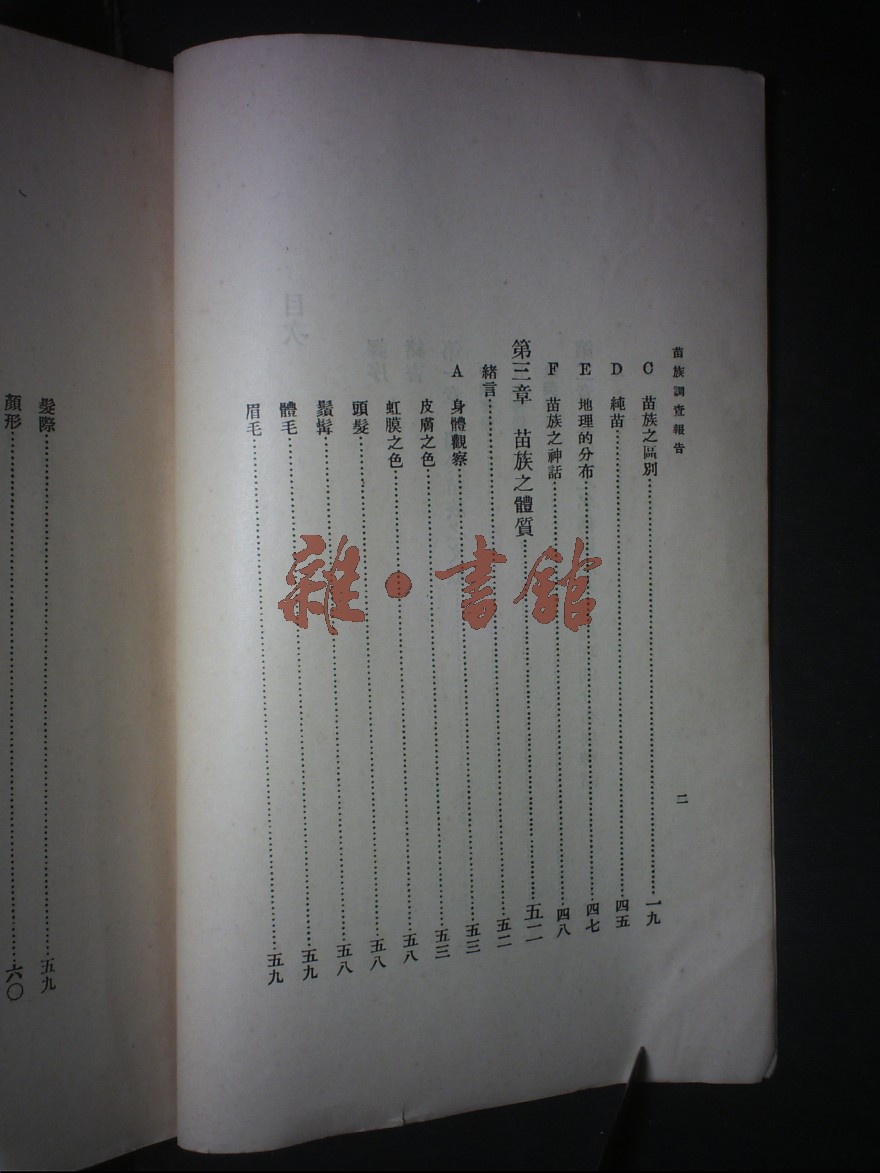 苗族調查報告
二
C 苗族之區別 一九
D 純苗 四五
E 地理的分布 四七
F 苗族之神話 四八
第三章 苗族之體質 五二
緒言 五二
A 身體觀察 五三
皮膚之色 五三
虹膜之色 五八
頭髮 五八
鬚髯 五八
體毛 五九
眉毛 五九
髮際 五九
顏形 六〇
雜·書館